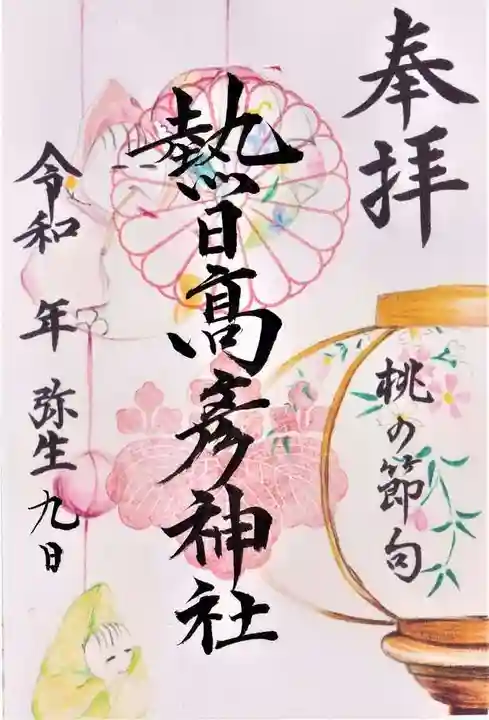 奉拝
桃の節句
熱日高彦神社
令和 年 弥生九日